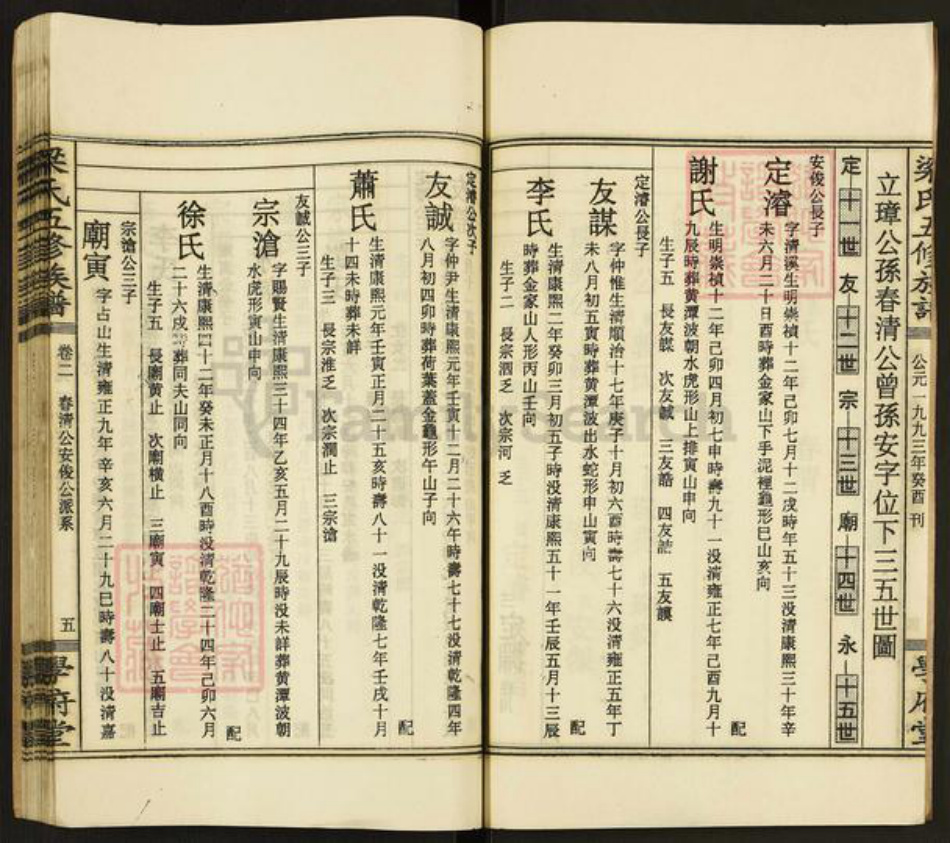 梁氏五修族譜
公元一九九三年癸酉刊
學府堂
立璋公孫春清公曾孫安字位下三五世圖
定十一世 友十二世 宗十三世 廟十四世 永十五世
安俊公長子
定濬
字清溪生明崇禎十二年己卯七月十二戌時年五十三没清康熙三十年辛
未六月二十日酉時葬金家山下手泥裡龜形巳山亥向
配
謝氏
生明崇禎十二年己卯四月初七申時壽九十一没清雍正七年己酉九月十
九辰時葬黄潭波朝水虎形山上排寅山申向
生子五 長友謀 次友誠 三友誥 四友 五友謨
定濬公長子
友謀
字仲惟生清順治十七年庚子十月初六酉時壽七十六没清雍正五年丁
未八月初五寅時葬黄潭波出水蛇形申山寅向
配
李氏
生清康熙二年癸卯三月初五子時没清康熙五十一年壬辰五月十三辰
時葬金家山人形丙山壬向
生子二 長宗泗乏 次宗河乏
定濬公次子
友誠
字仲尹生清康熙元年壬寅十二月二十六午時壽七十七没清乾隆四年
八月初四卯時葬荷葉蓋金龜形午山子向
配
蕭氏
生清康熙元年壬寅正月二十五亥時壽八十一没清乾隆七年壬戌十月
十四未時葬未詳
生子三 長宗淮乏 次宗澗止 三宗滄
友誠公三子
宗滄
字賜賢生清康熙三十四年乙亥五月二十九辰時没未詳葬黄潭波朝
水虎形寅山申向
配
徐氏
生清康熙四十二年癸未正月十八酉時没清乾隆二十四年己卯六月
二十六戌時葬同夫山同向
生子五 長廟黄止 次廟橫止 三廟寅 四廟士止 五廟吉止
宗滄公三子
廟寅
字占山生清雍正九年辛亥六月二十九巳時壽八十没清嘉
梁氏五修族譜
卷二 春清公安俊公派系
五
學府堂
FamilySearch